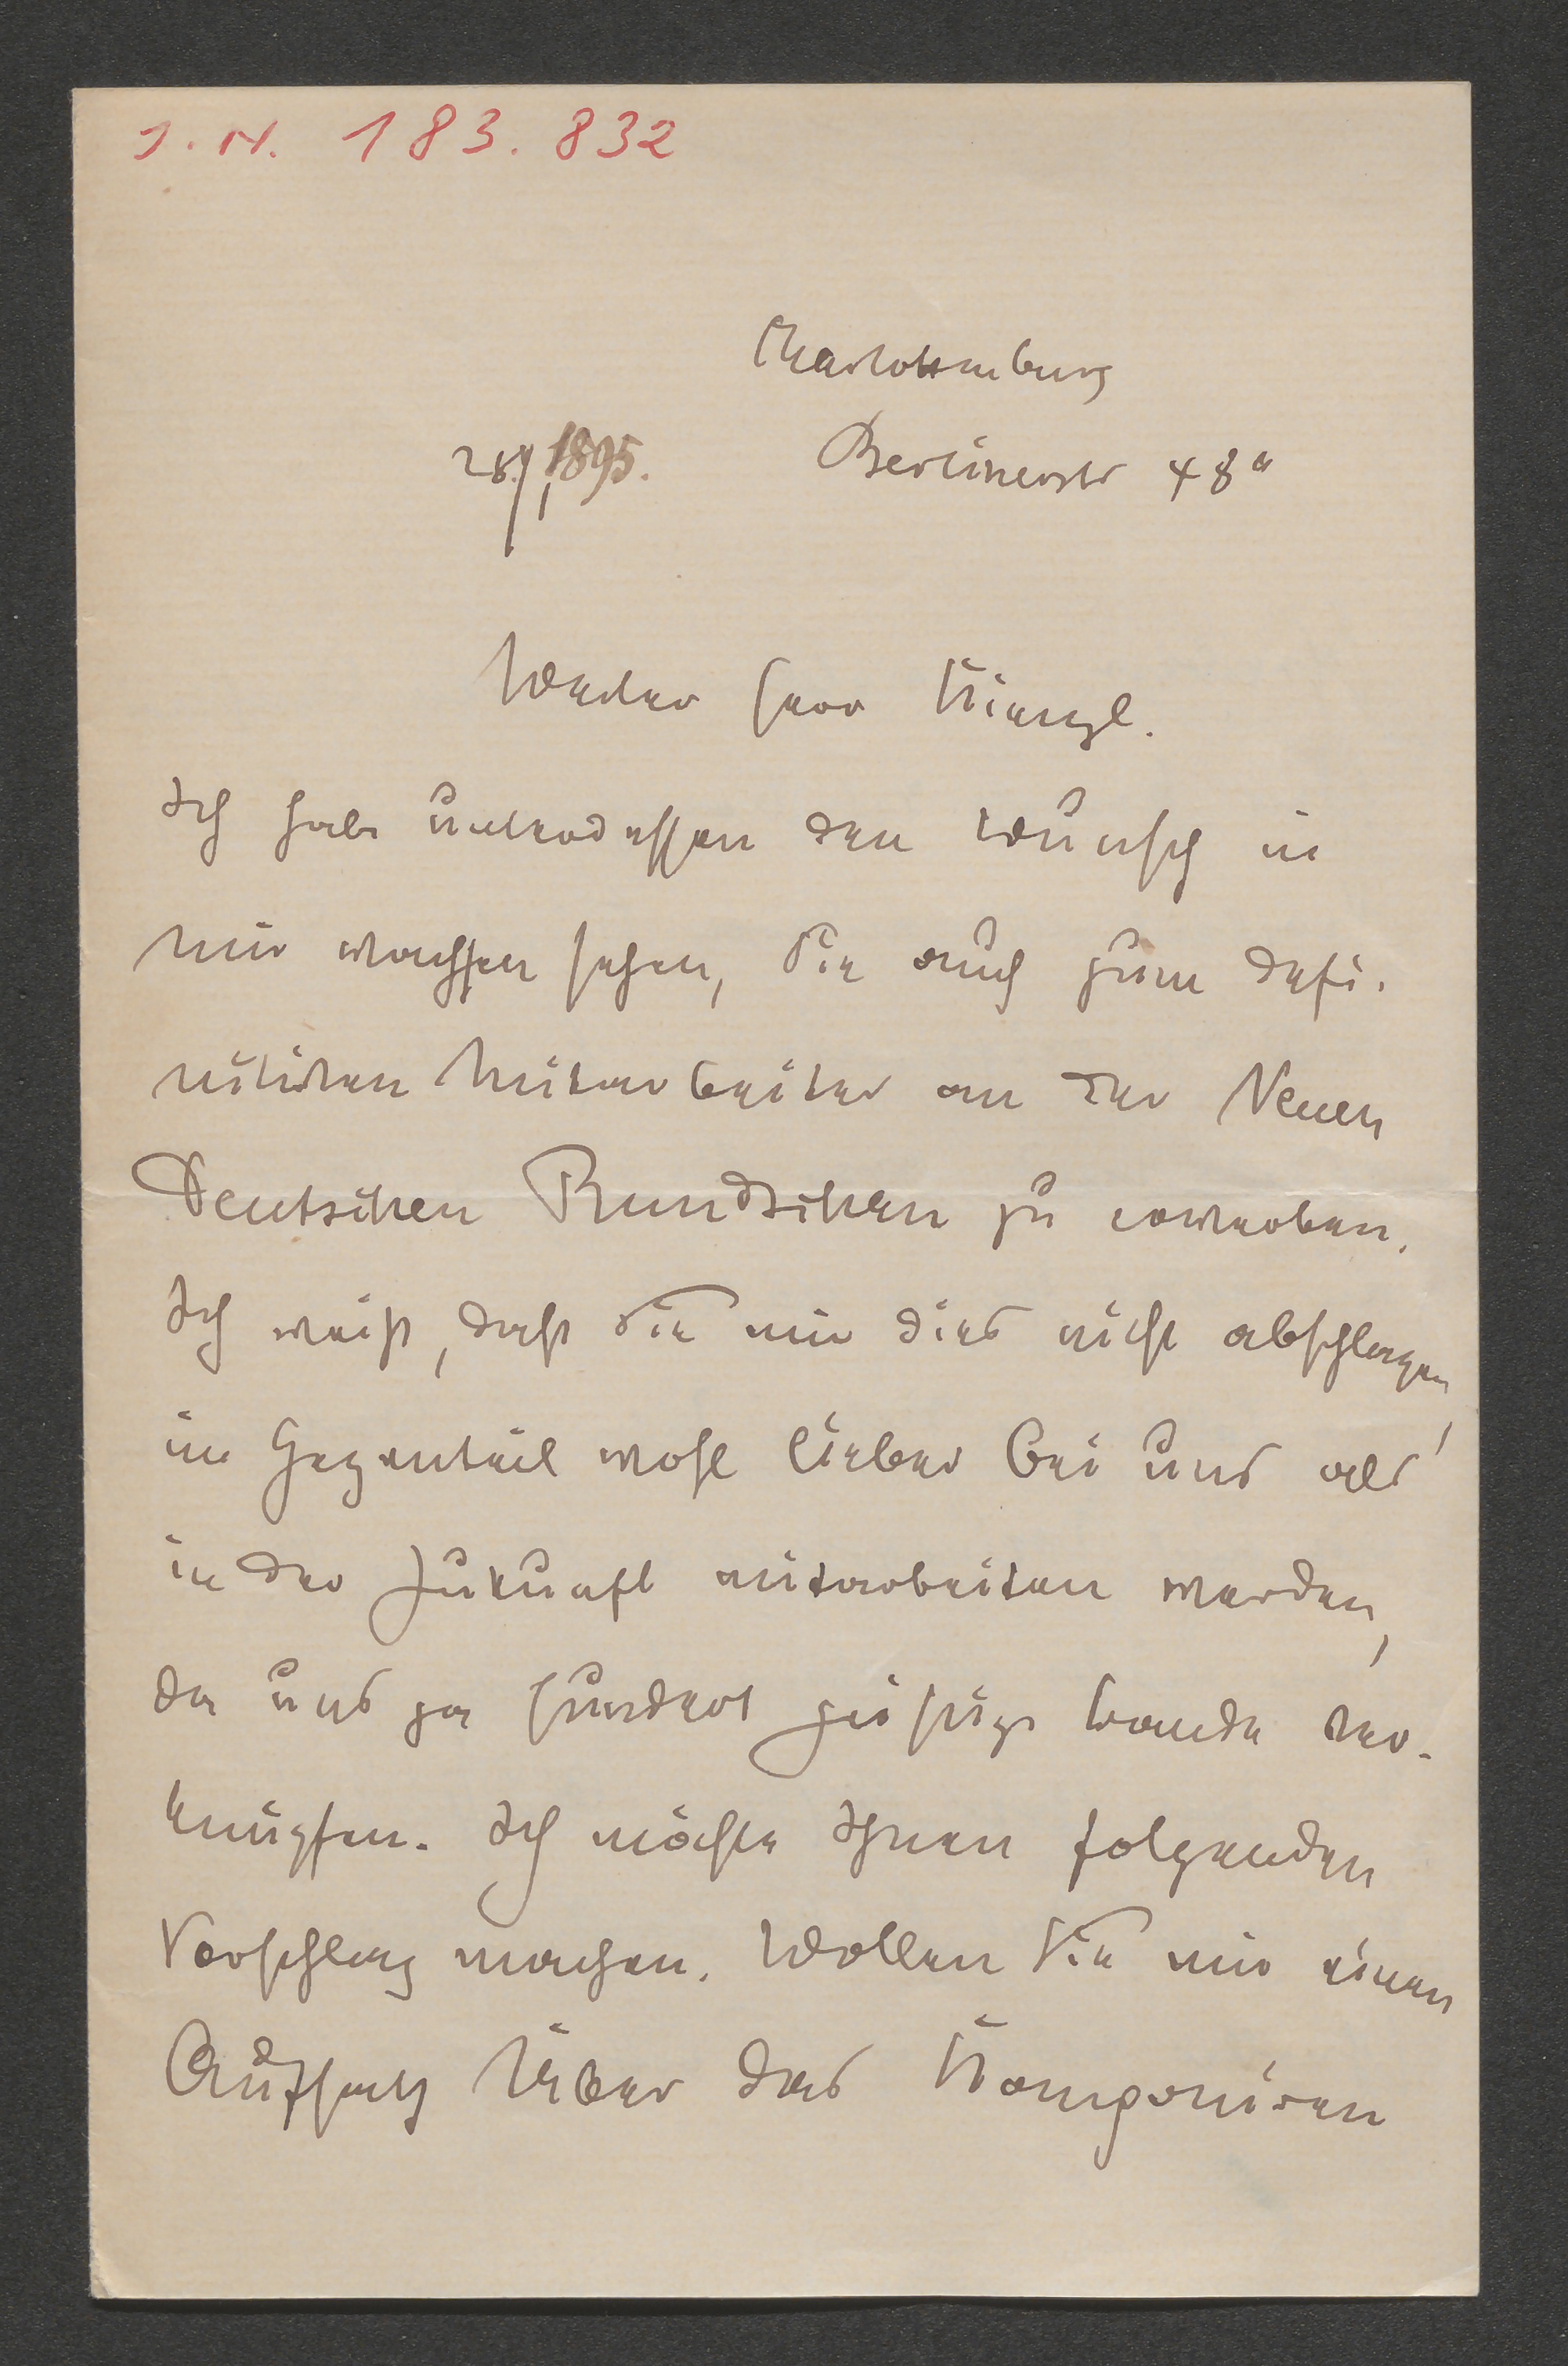 I. N. 183.832
Charlottenburg
28/1 1895. Berlinerstr 48a
Werter Herr Kienzl.
Ich habe unterdessen den Wunsch in
mir wachsen sehen, Sie auch zum defi-
nitiven Mitarbeiter an der Neuen
Deutschen Rundschau zu erwerben.
Ich weiß, daß Sie mir dies nicht abschlagen,
im Gegenteil wohl lieber bei uns als
in der Zukunft mitarbeiten werden,
da uns ja hundert geistige Bande ver-
knüpfen. Ich möchte Ihnen folgenden
Vorschlag machen. Wollen Sie mir einen
Aufsatz Über das Komponiren